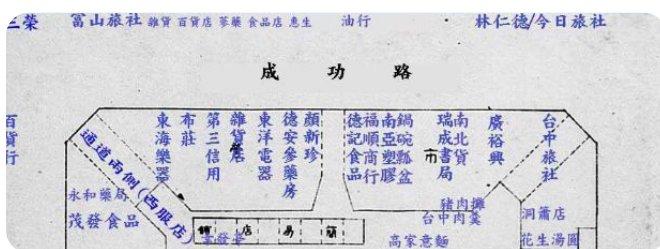 三榮
富山旅社
雜貨
百貨店
蔘藥
食品店
惠生
油行
林仁德/今日旅社
成功路
百貨行
通道兩側(西服店)
東海樂器
布莊
第三信用
雜貨店
東洋電器
德安參藥房
顏新珍
德記食品
福順商行
南亞塑膠
鍋碗瓢盆
市
瑞成書局
南北貨
廣裕興
台中旅社
永和藥局
茂發食品
舖店易簡
豬肉攤
台中肉羹
高家意麵
洞簫店
花生湯圓